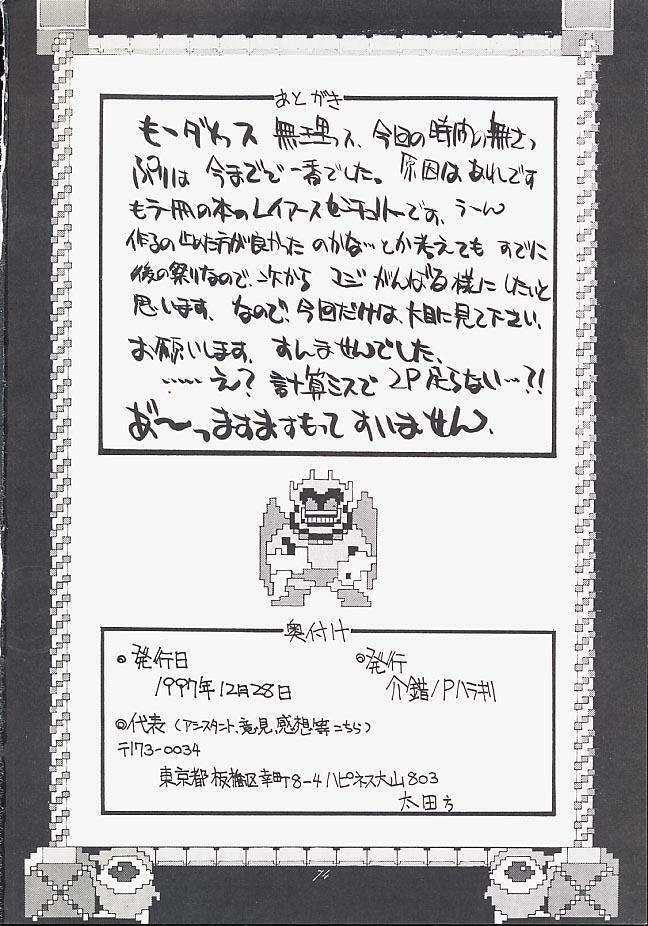 あとがき
もーダめっス 無理っス、今回の時間の無さっ
ぷりは 今までで一番でした。原因はあれです
もう一冊の本のレイアース です、うーん
作るの止めた方が良かった のかな…とか考えても すでに
後の祭りなので、次から マジ がんばる様に したいと
思います、なので、今回だけは、大目に見て下さい、
お願いします、すんませんでした、
……え? 計算ミスで 2P 足らない…?!
あ〜っますますもって すいません、
奥付け
◎発行日
1997年12月28日
◎発行
介錯/Pハラキリ
◎代表 (アシスタント、意見、感想等こちら)
〒173-0034
東京都板橋区幸町8-4ハピネス大山803
太田方
74